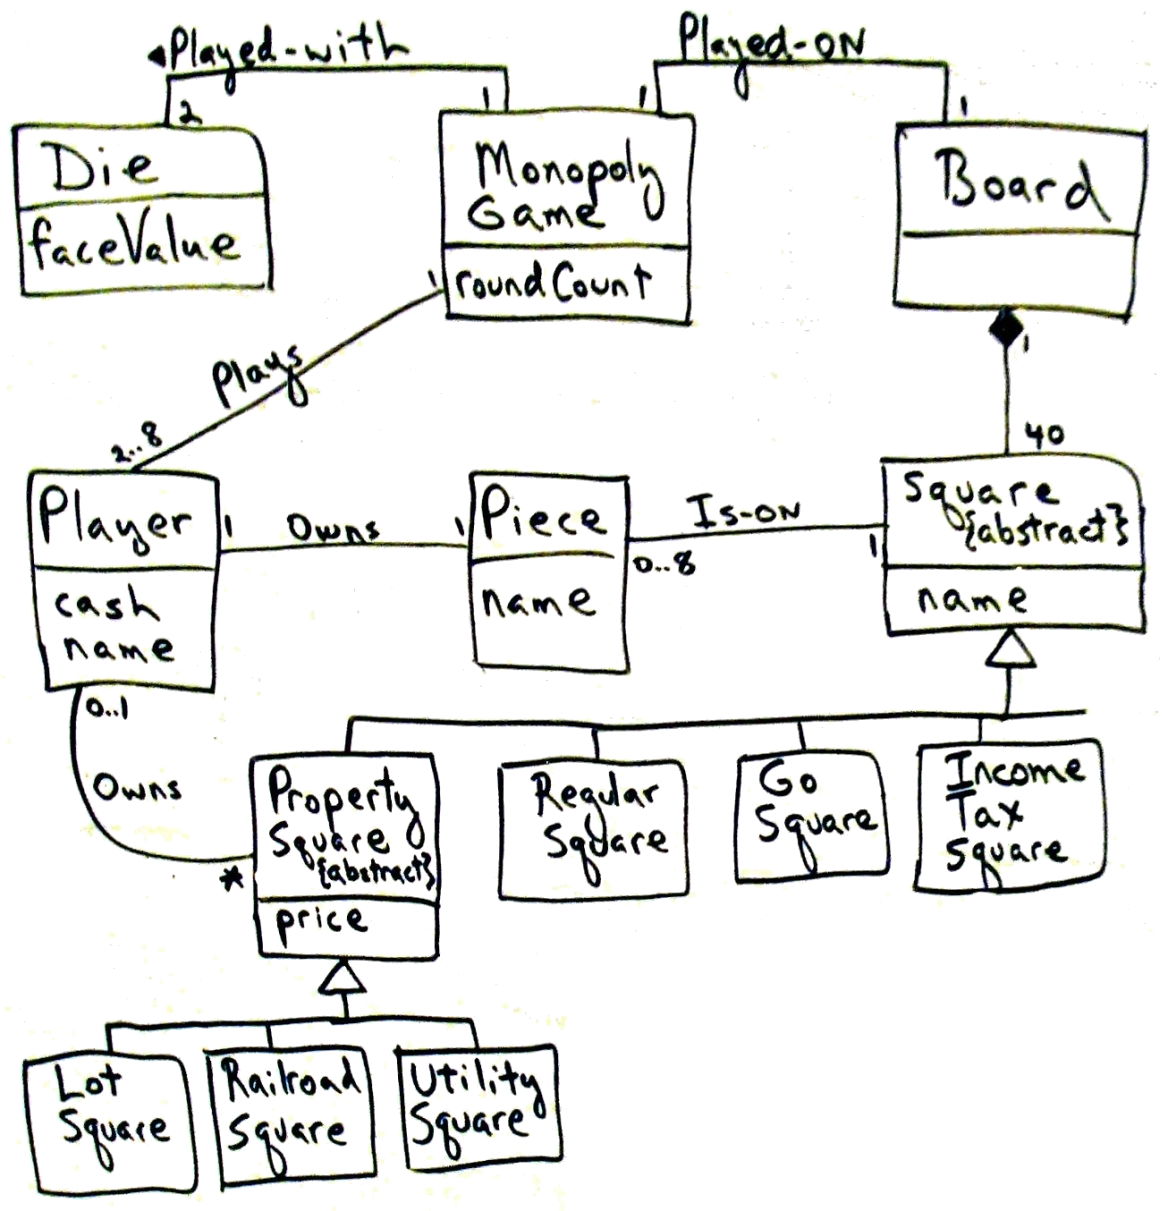 ◄Played-with
Played-ON
1
1
2
1
Die
faceValue
Monopoly
Game
roundCount
Board
1
Plays
2..8
1
40
Player
cash
name
1
Owns
1
Piece
name
Is-ON
0..8
1
Square
{abstract}
name
0..1
Owns
*
Property
Square
{abstract}
price
Regular
Square
Go
Square
Income
Tax
Square
Lot
Square
Railroad
Square
Utility
Square